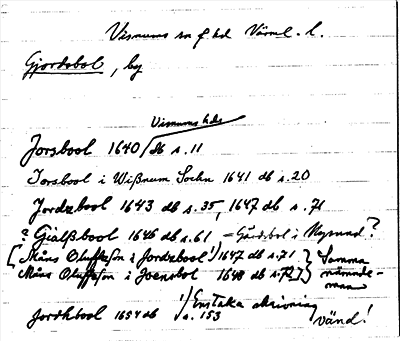 Visnums sn o hd Värml. l.
Gjordsbol, by
Visnums hds
Jorsbool 1640 db s. 11
Jorsbool i Wißnum Sochn 1641 db s. 20
Jordzbool 1643 db s. 35, 1647 db s. 71
? Giälßbool 1646 db s. 61 = Gårdsbol i Nysund?
[Måns Oluffsson i Jordzbool 1) 1647 db s. 71.} Samma
Måns Oluffsson i Joensbol 1648 db s. 727]} nämnde-
man
1) Enstaka skrivning
Jordhbool 1654 db s. 153
vänd!